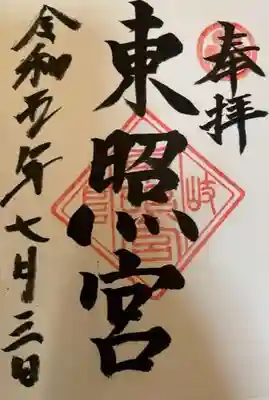 奉拝
東照宮
令和五年七月三日